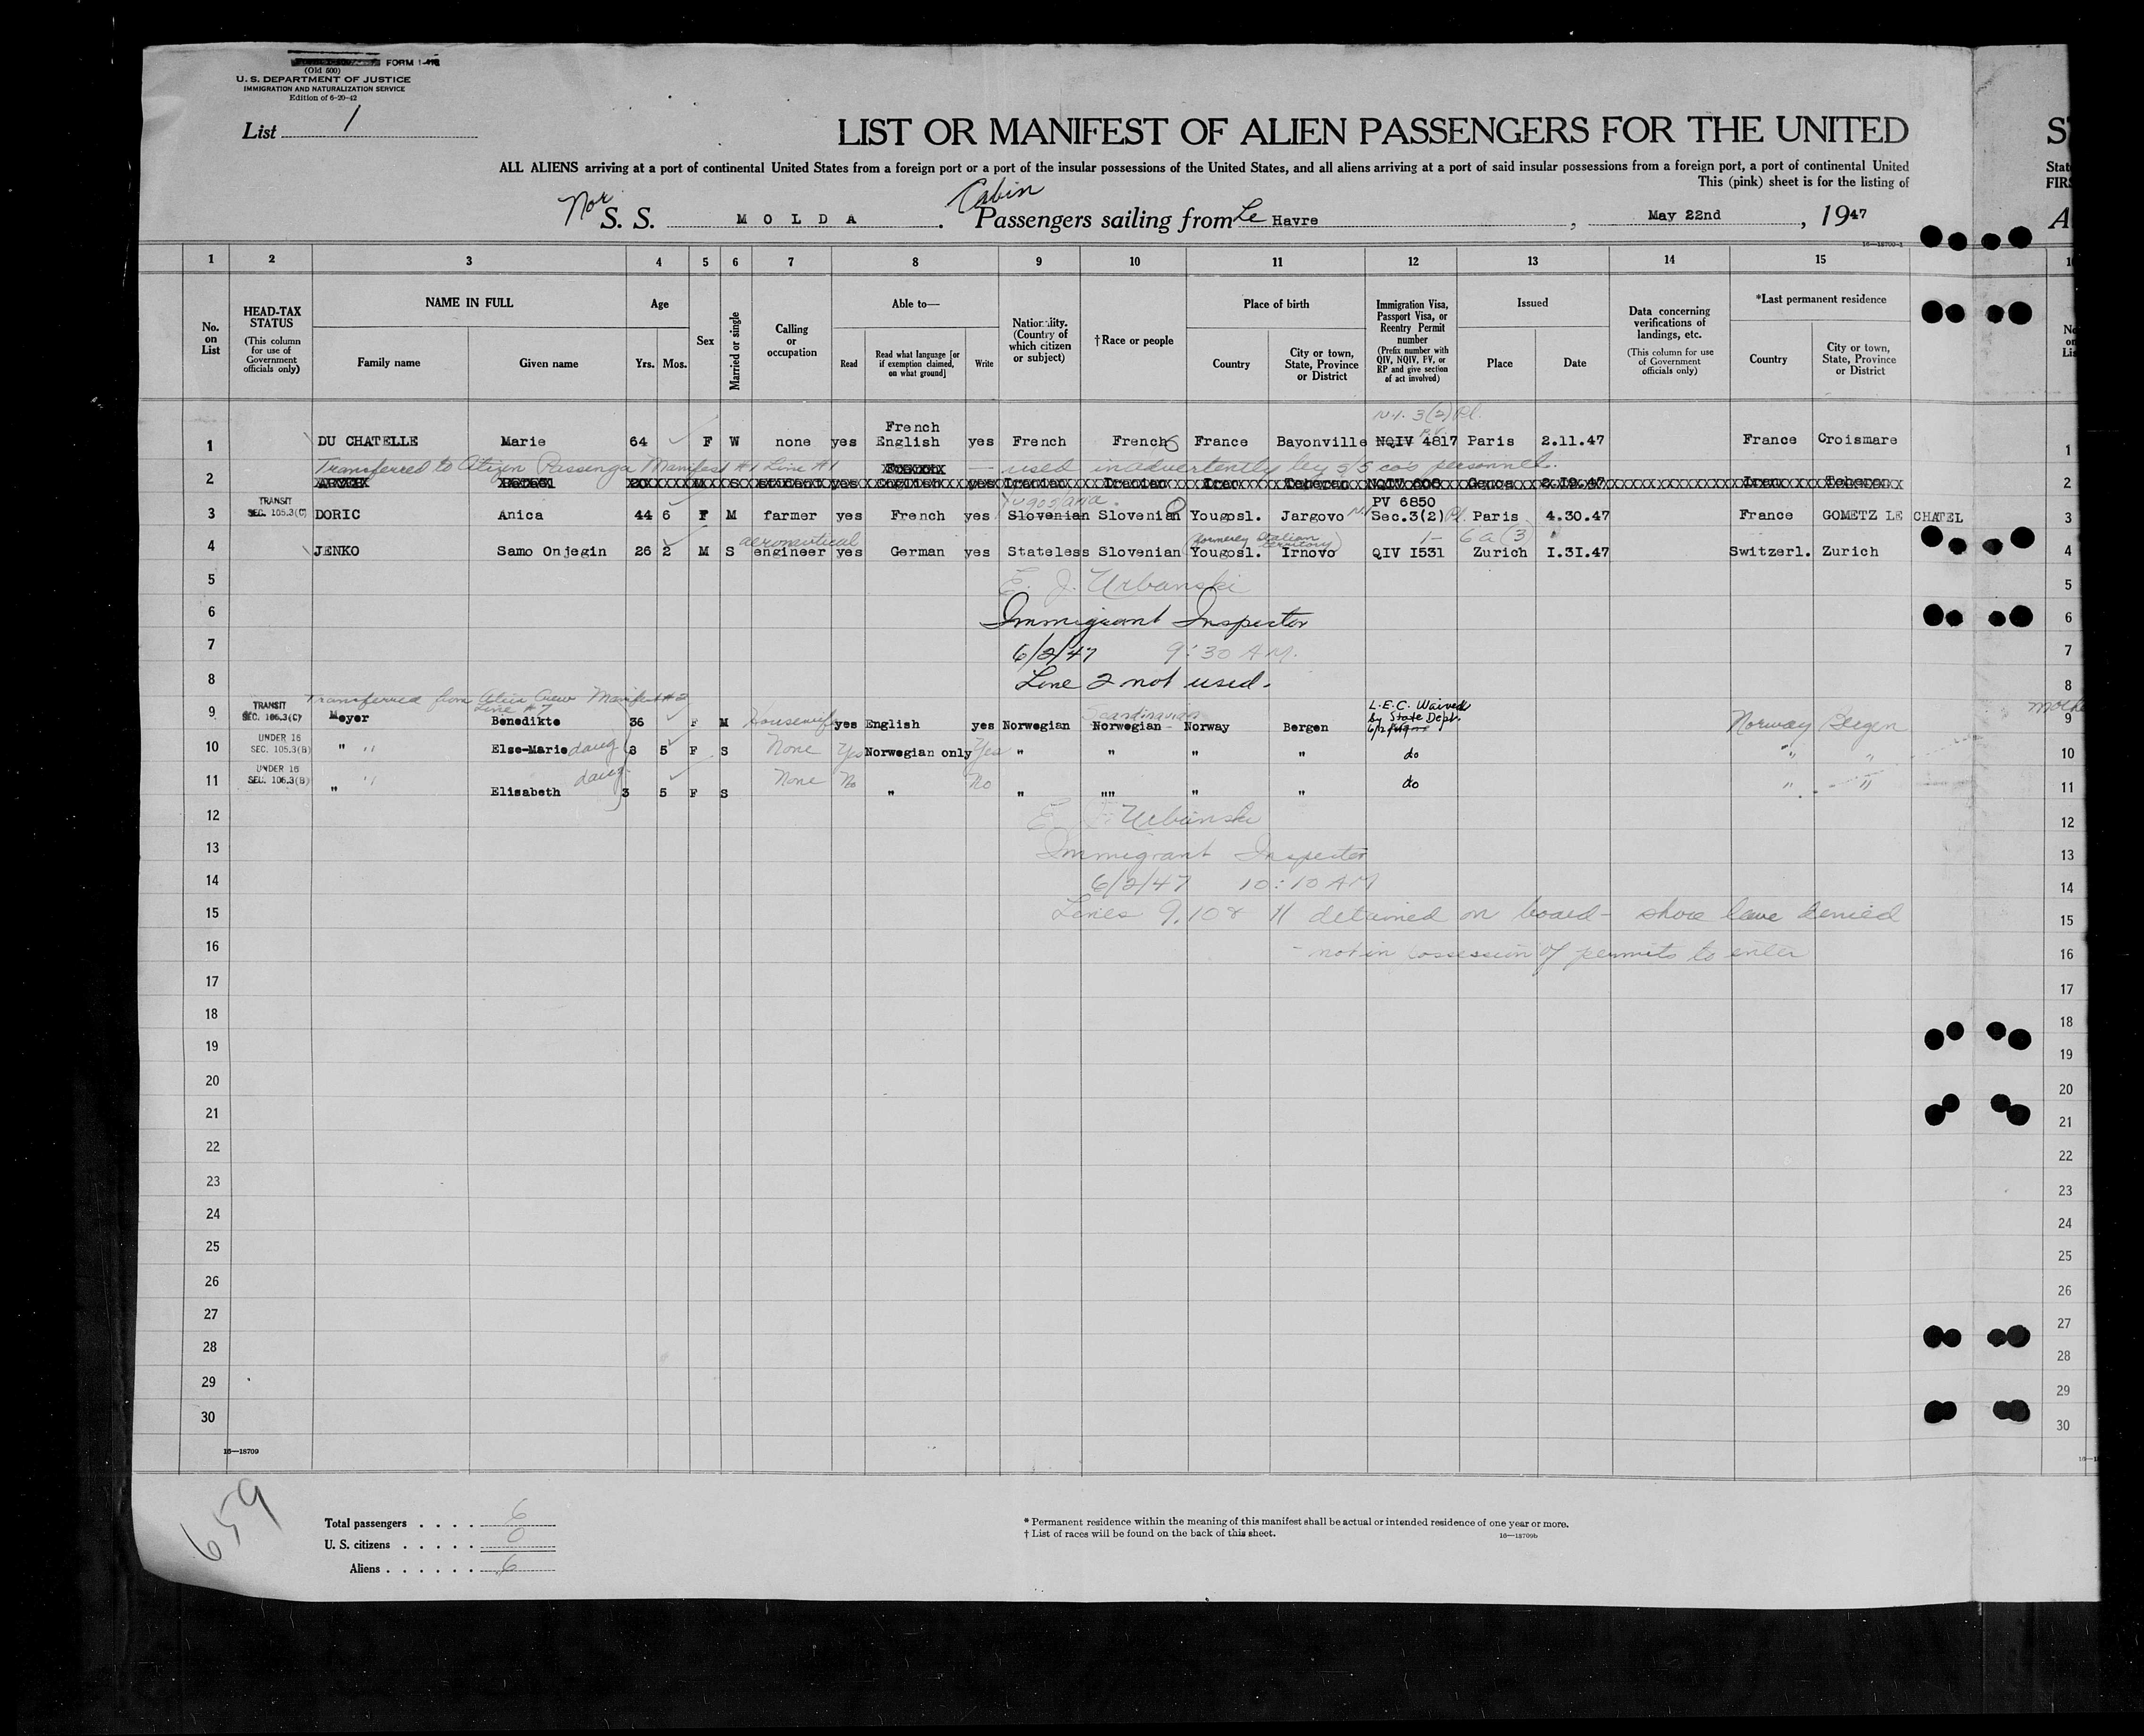 FORM I-418
(Old 500)
U. S. DEPARTMENT OF JUSTICE
IMMIGRATION AND NATURALIZATION SERVICE
Edition of 6-20-42
List 1
LIST OR MANIFEST OF ALIEN PASSENGERS FOR THE UNITED
ALL ALIENS arriving at a port of continental United States from a foreign port or a port of the insular possessions of the United States, and all aliens arriving at a port of said insular possessions from a foreign port, a port of continental United
This (pink) sheet is for the listing of
Nor S. S. MOLDA. Cabin Passengers sailing from Le Havre, May 22nd, 1947
16—18709-1
1 2 3 4 5 6 7 8 9 10 11 12 13 14 15
No. on List
HEAD-TAX STATUS (This column for use of Government officials only)
NAME IN FULL Family name Given name
Age Yrs. Mos.
Sex
Married or single
Calling or occupation
Able to— Read Read what language [or if exemption claimed, on what ground] Write
Nationality. (Country of which citizen or subject)
†Race or people
Place of birth Country City or town, State, Province or District
Immigration Visa, Passport Visa, or Reentry Permit number (Prefix number with QIV, NQIV, PV, or RP and give section of act involved)
Issued Place Date
Data concerning verifications of landings, etc. (This column for use of Government officials only)
*Last permanent residence Country City or town, State, Province or District
N.I. 3(2) Pl.
1 DU CHATELLE Marie 64 F W none yes French English yes French French France Bayonville NQIV 4817 Paris 2.11.47 France Croismare 1
Transferred to Citizen Passenger Manifest #1 Line #1 — used inadvertently by S/S co's personnel.
2 student yes English yes Iranian Iranian Iran Teheran NQIV 608 Genoa 2.19.47 Iran Teheran 2
TRANSIT SEC. 105.3(C) Yugoslavia. PV 6850
3 DORIC Anica 44 6 F M farmer yes French yes Slovenian Slovenian Yougosl. Jargovo N.I. Sec.3(2) Pl. Paris 4.30.47 France GOMETZ LE CHATEL 3
aeronautical (formerly Italian territory) I- 6a(3)
4 JENKO Samo Onjegin 26 2 M S engineer yes German yes Stateless Slovenian Yougosl. Irnovo QIV I531 Zurich I.3I.47 Switzerl. Zurich 4
5 E. J. Urbanski 5
6 Immigrant Inspector 6
7 6/2/47 9:30 A.M. 7
8 Line 2 not used. 8
Transferred from Alien Crew Manifest #2 Line #7
TRANSIT SEC. 105.3(C) Scandinavian L.E.C. Waived by State Dept.
9 Meyer Benedikte 36 F M Housewife yes English yes Norwegian Norwegian Norway Bergen Norway Bergen 9
UNDER 16 SEC. 105.3(B)
10 " " Else-Marie daug 8 5 F S None Yes Norwegian only Yes " " " " do " " 10
UNDER 16 SEC. 105.3(B)
11 " " Elisabeth daug 3 5 F S None No " No " "" " " do " " 11
12 Urbanski 12
13 Immigrant Inspector 13
14 6/2/47 10:10 AM 14
15 Lines 9, 10 & 11 detained on board - shore leave denied 15
16 - not in possession of permits to enter 16
17 17
18 18
19 19
20 20
21 21
22 22
23 23
24 24
25 25
26 26
27 27
28 28
29 29
30 30
16—18709
659
Total passengers . . . . 6
U. S. citizens . . . . . 0
Aliens . . . . . . 6
* Permanent residence within the meaning of this manifest shall be actual or intended residence of one year or more.
† List of races will be found on the back of this sheet.
16—18709b